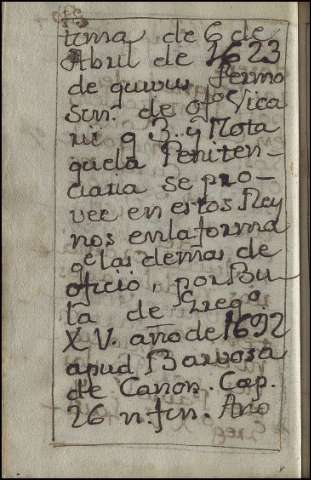 tima de 6 de
Abril de 1623
de quivis Permo
Sun. de ofº. Vica
rii q 3. y Nota
quela Peniten-
ciaria se pro-
vee en estos Rey
nos enla forma
qe las demas de
oficio, por Bu
la de Gregº
XV. año de 1692
apud Barbosa
de Canon. Cap.
26 n. fin. Año